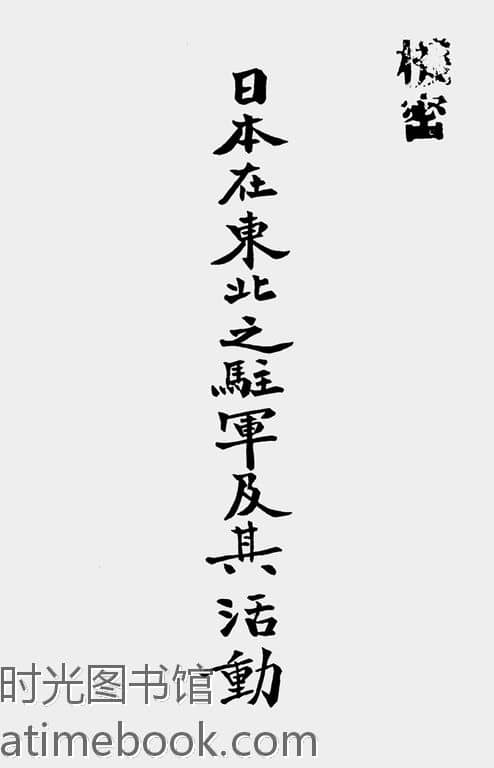 機密
日本在東北之駐軍及其活動
时光图书馆
atimebook.com